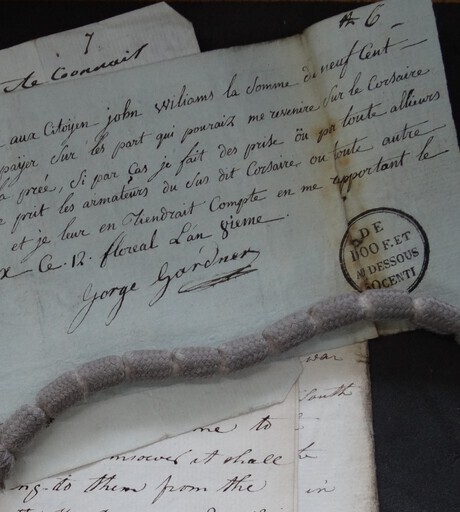 7
le Conduit
# 6
aux Citoyen john Wiliams la Somme de neuf Cent
payer Sur les part qui pouraix me revenire Sur le Corsaire
la prée, Si par Cas je fait des prise ou par toute allieurs
prit les armateurs du Sus dit Corsaire ou toute autre
et je leur en Tiendrait Compte en me apportant le
Ce 12 floreal L'an Vieme.
Gorge Gardner
DE
100 F. ET
AU DESSOUS
50 CENTI
war
South
me to
answer it shall be
ng to them from the in